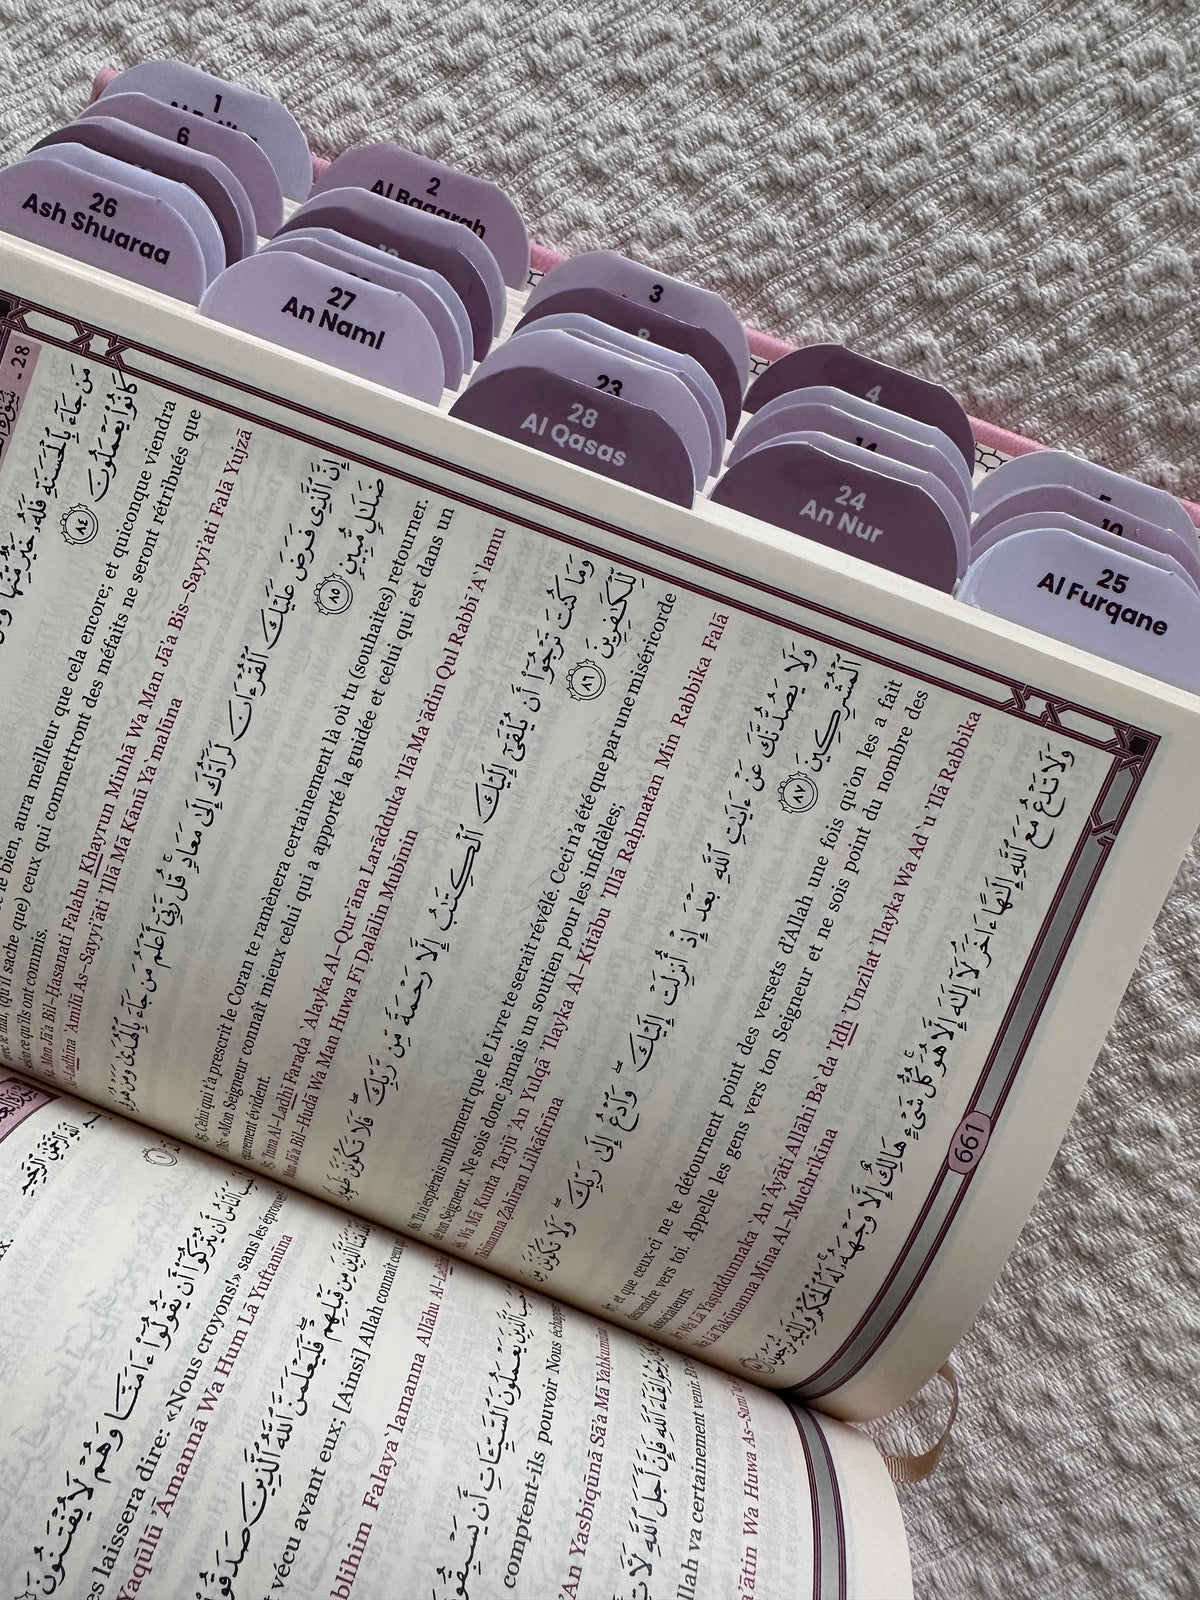 1
6
26
Ash Shuaraa
2
Al Baqarah
27
An Naml
3
23
28
Al Qasas
4
24
An Nur
10
25
Al Furqane
- 28
مَن جَآءَ بِٱلْحَسَنَةِ فَلَهُۥ خَيْرٌ مِّنْهَا
كَانُوا۟ يَعْمَلُونَ ٨٤
le bien, aura meilleur que cela encore; et quiconque viendra
(qu'il sache que) ceux qui commettront des méfaits ne seront rétribués que
ce qu'ils ont commis.
Man Jā'a Bil-Ĥasanati Falahu Khayrun Minhā Wa Man Jā'a Bis-Sayyi'ati Falā Yujzá
Al-Ladhīna `Amilū As-Sayyi'āti 'Illā Mā Kānū Ya`malūna
إِنَّ ٱلَّذِى فَرَضَ عَلَيْكَ ٱلْقُرْءَانَ لَرَآدُّكَ إِلَىٰ مَعَادٍ قُل رَّبِّىٓ أَعْلَمُ مَن جَآءَ بِٱلْهُدَىٰ وَمَنْ هُوَ فِى
ضَلَٰلٍ مُّبِينٍ ٨٥
85. Celui qui t'a prescrit le Coran te ramènera certainement là où tu (souhaites) retourner.
Dis: «Mon Seigneur connaît mieux celui qui a apporté la guidée et celui qui est dans un
égarement évident.
85. 'Inna Al-Ladhī Farađa `Alayka Al-Qur'āna Larādduka 'Ilá Ma`ādin Qul Rabbī 'A`lamu
Man Jā'a Bil-Hudá Wa Man Huwa Fī Đalālin Mubīnin
وَمَا كُنتَ تَرْجُوٓا۟ أَن يُلْقَىٰٓ إِلَيْكَ ٱلْكِتَٰبُ إِلَّا رَحْمَةً مِّن رَّبِّكَ فَلَا تَكُونَنَّ ظَهِيرًا
لِّلْكَٰفِرِينَ ٨٦
86. Tu n'espérais nullement que le Livre te serait révélé. Ceci n'a été que par une miséricorde
de ton Seigneur. Ne sois donc jamais un soutien pour les infidèles;
86. Wa Mā Kunta Tarjū 'An Yulqá 'Ilayka Al-Kitābu 'Illā Raĥmatan Min Rabbika Falā
Takūnanna Žahīran Lilkāfirīna
وَلَا يَصُدُّنَّكَ عَنْ ءَايَٰتِ ٱللَّهِ بَعْدَ إِذْ أُنزِلَتْ إِلَيْكَ وَٱدْعُ إِلَىٰ رَبِّكَ وَلَا تَكُونَنَّ مِنَ
ٱلْمُشْرِكِينَ ٨٧
87. et que ceux-ci ne te détournent point des versets d'Allah une fois qu'on les a fait
descendre vers toi. Appelle les gens vers ton Seigneur et ne sois point du nombre des
Associateurs.
87. Wa Lā Yaşuddunnaka `An 'Āyāti Allāhi Ba`da 'Idh 'Unzilat 'Ilayka Wa Ad`u 'Ilá Rabbika
Wa Lā Takūnanna Mina Al-Muchrikīna
وَلَا تَدْعُ مَعَ ٱللَّهِ إِلَٰهًا ءَاخَرَ لَآ إِلَٰهَ إِلَّا هُوَ كُلُّ شَىْءٍ هَالِكٌ إِلَّا وَجْهَهُۥ لَهُ ٱلْحُكْمُ وَإِلَيْهِ تُرْجَعُونَ
661
أَن يُتْرَكُوٓا۟ أَن يَقُولُوٓا۟ ءَامَنَّا وَهُمْ لَا يُفْتَنُونَ
laissera dire: «Nous croyons!» sans les éprouver
Yaqūlū 'Āmannā Wa Hum Lā Yuftanūna
مِن قَبْلِهِمْ فَلَيَعْلَمَنَّ ٱللَّهُ ٱلَّذِينَ صَدَقُوا۟
vécu avant eux; [Ainsi] Allah connaît ceux
Falaya`lamanna Allāhu Al-Ladhī
ٱلَّذِينَ يَعْمَلُونَ ٱلسَّيِّـَٔاتِ أَن يَسْبِقُونَا
comptent-ils pouvoir Nous échapper
'An Yasbiqūnā Sā'a Mā Yaĥkumūna
لِقَآءَ ٱللَّهِ فَإِنَّ أَجَلَ ٱللَّهِ لَـَٔاتٍ
va certainement venir.
Wa Huwa As-Samī`u